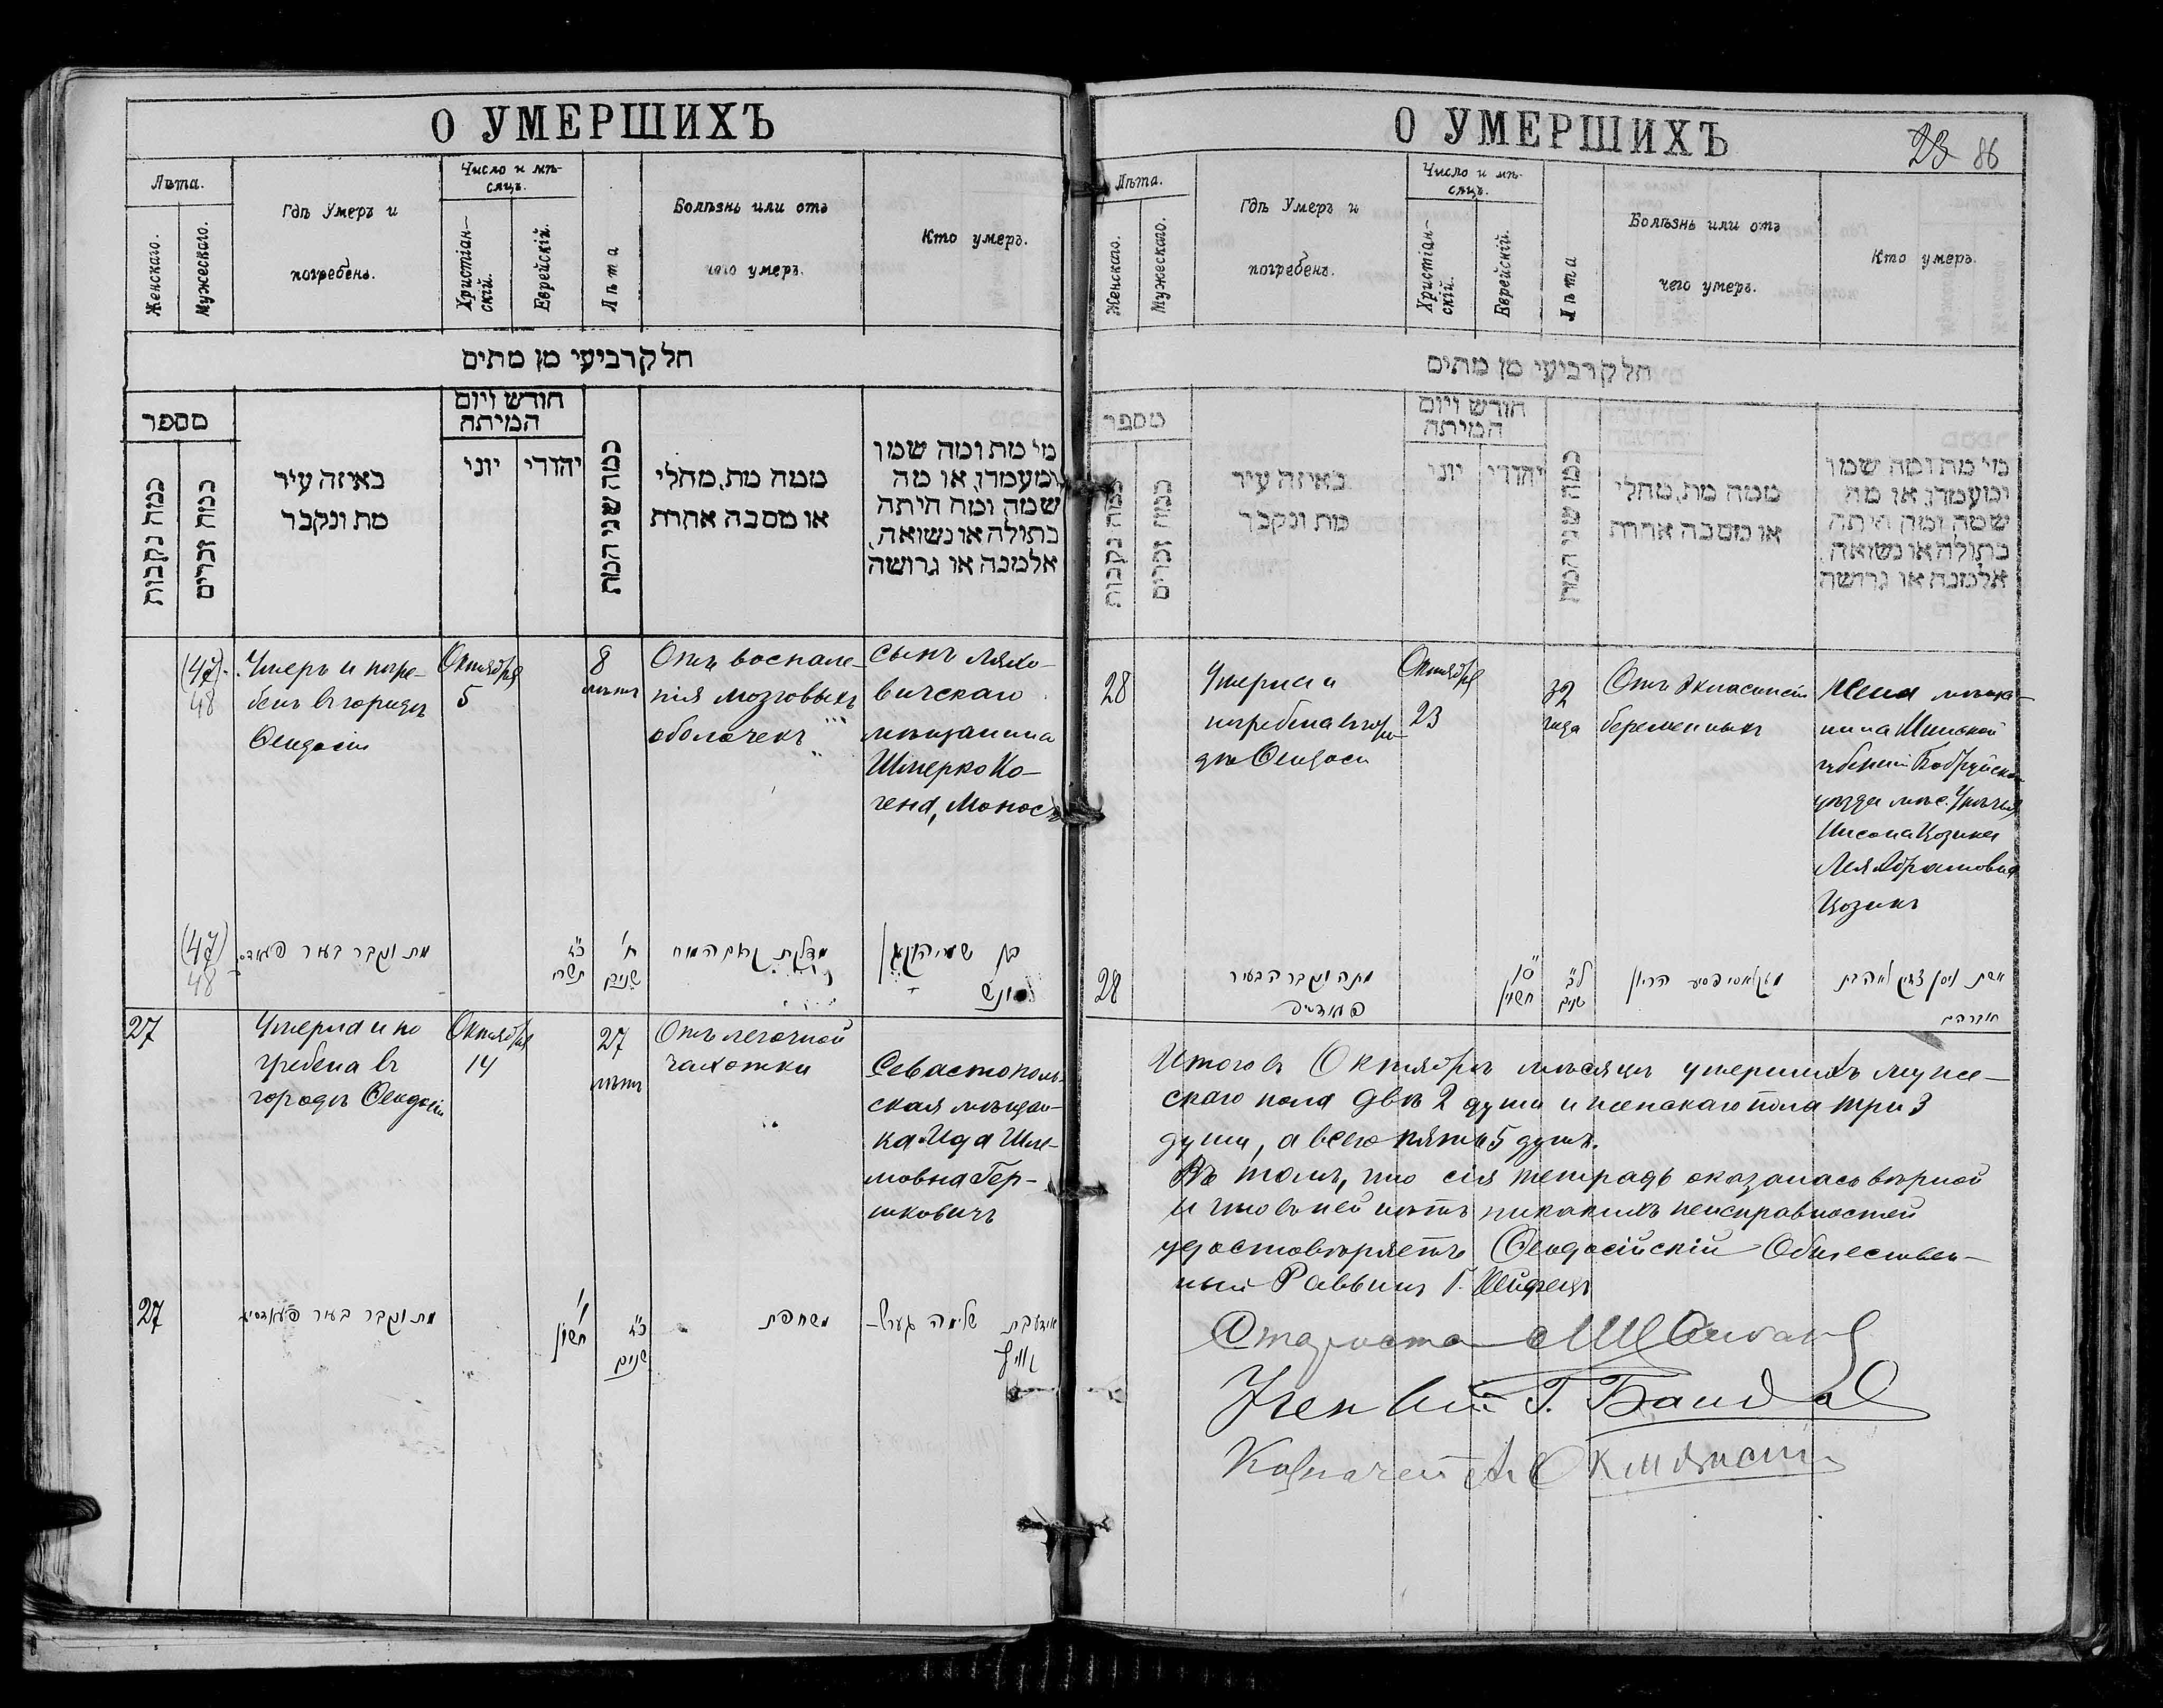 О УМЕРШИХЪ
Лѣта.
Женскаго.
Мужескаго.
Гдѣ Умеръ и
погребенъ.
Число и мѣ-
сяцъ.
Христіан-
скій.
Еврейскій.
Лѣта
Болѣзнь или отъ
чего умеръ.
Кто умеръ.
חלק רביעי מן מתים
מספר
כמה נקבות
כמה זכרים
באיזה עיר
מת ונקבר
חודש ויום
המיתה
יוני
יהודי
כמה שני המת
ממה מת, מחלי
או מסבה אחרת
מי מת ומה שמו
ומעמדו, או מה
שמה ומה היתה
בתולה או נשואה,
אלמנה או גרושה
(47)
48
Умеръ и погре-
бенъ въ городѣ
Ѳеодосіи
Октября
5
8
лѣтъ
Отъ воспале-
нія мозговыхъ
оболочекъ
Сынъ Ляхо-
вичскаго
мѣщанина
Шмерко Ко-
гена, Моносъ
(47)
48
מת ונקבר בעיר
כ״ג
תשרי
ח׳
שנים
מדלקת קרום המוח
בן
27
Умерла и по
гребена въ
городѣ Ѳеодосіи
Октября
14
27
лѣтъ
Отъ легочной
чахотки
Севастополь-
ская мѣщан-
ка Ида Шле-
мовна Гер-
шковичъ
27
מת ונקבר בעיר
חשון
שנים
משחפת
שלימה
О УМЕРШИХЪ
23 86
Лѣта.
Женскаго.
Мужескаго.
Гдѣ Умеръ и
погребенъ.
Число и мѣ-
сяцъ.
Христіан-
скій.
Еврейскій.
Лѣта
Болѣзнь или отъ
чего умеръ.
Кто умеръ.
חלק רביעי מן מתים
מספר
כמה נקבות
כמה זכרים
באיזה עיר
מת ונקבר
חודש ויום
המיתה
יוני
יהודי
כמה שני המת
ממה מת, מחלי
או מסבה אחרת
מי מת ומה שמו
ומעמדו, או מה
שמה ומה היתה
בתולה או נשואה,
אלמנה או גרושה
28
Умерла и
погребена въ горо-
дѣ Ѳеодосіи
Октября
23
32
года
Отъ Эклампсіи
беременныхъ
Жена мѣща-
нина Минской
губерніи Бобруйскаго
уѣзда мѣс.
Нисона Цозика
Лея Абрамовна
Цозикъ
28
מתה ונקברה בעיר
חשון
ל״ב
שנים
הריון
אשת ניסן
אברהם
Итого въ Октябрѣ мѣсяцѣ умершихъ муже-
скаго пола двѣ 2 души и женскаго пола три 3
души, а всего пять 5 душъ.
Въ томъ, что сія тетрадь оказалась вѣрной
и что въ ней нѣтъ никакихъ неисправностей
удостовѣряетъ Ѳеодосійскій Обществен-
ный Раввинъ Г. Хейфецъ
Староста
Ученый Г.
Казначей